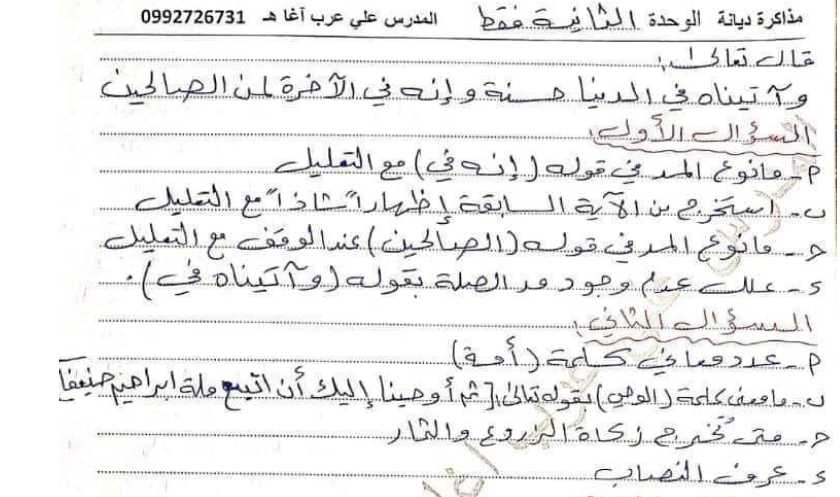 مذاكرة ديانة الوحدة الثانية فقط المدرس علي عرب آغا هـ 0992726731
قال تعالى:
وآتيناه في الدنيا حسنة وإنه في الآخرة لمن الصالحين
السؤال الأول:
م- مانوع المد في قوله (إنه في) مع التعليل
ب- استخرج من الآية السابقة إظهاراً "شاذاً" مع التعليل
ح- مانوع المد في قوله (الصالحين) عند الوقف مع التعليل
د- علل عدم وجود مد الصلة بقوله (وآتيناه في).
السؤال الثاني:
م- عدد معاني كلمة (أمة)
ب- مامعنى كلمة (الوحي) بقوله تعالى: [ثم أوحينا إليك أن اتبع ملة ابراهيم حنيفا
ح- متى تُخرج زكاة الزروع والثمار
د- عرف النصاب